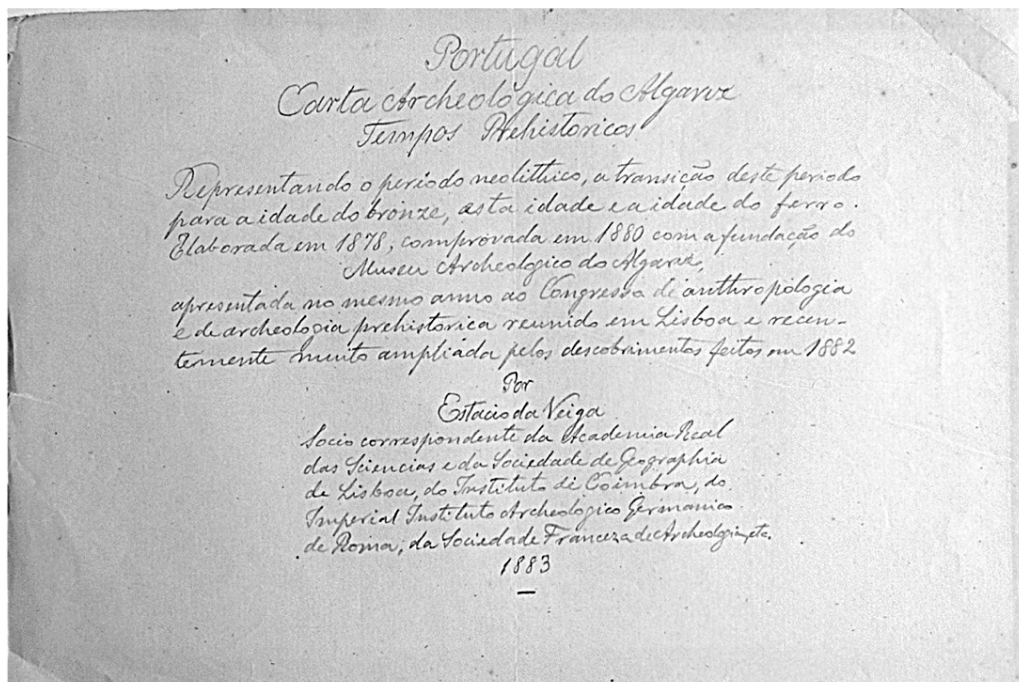 Portugal
Carta Archeológica do Algarve
Tempos Prehistoricos
Representando o periodo neolithico, a transição deste periodo
para a idade do bronze, esta idade e a idade do ferro.
Elaborada em 1878, comprovada em 1880 com a fundação do
Museu Archeologico do Algarve,
apresentada no mesmo anno ao Congresso de anthropologia
e de archeologia prehistorica reunido em Lisboa e recen-
temente muito ampliada pelos descobrimentos feitos em 1882
Por
Estacio da Veiga
Socio correspondente da Academia Real
das Sciencias e da Sociedade de Geographia
de Lisboa, do Instituto de Coimbra, do
Imperial Instituto Archeologico Germanico
de Roma, da Sociedade Franceza de Archeologia, etc.
1883